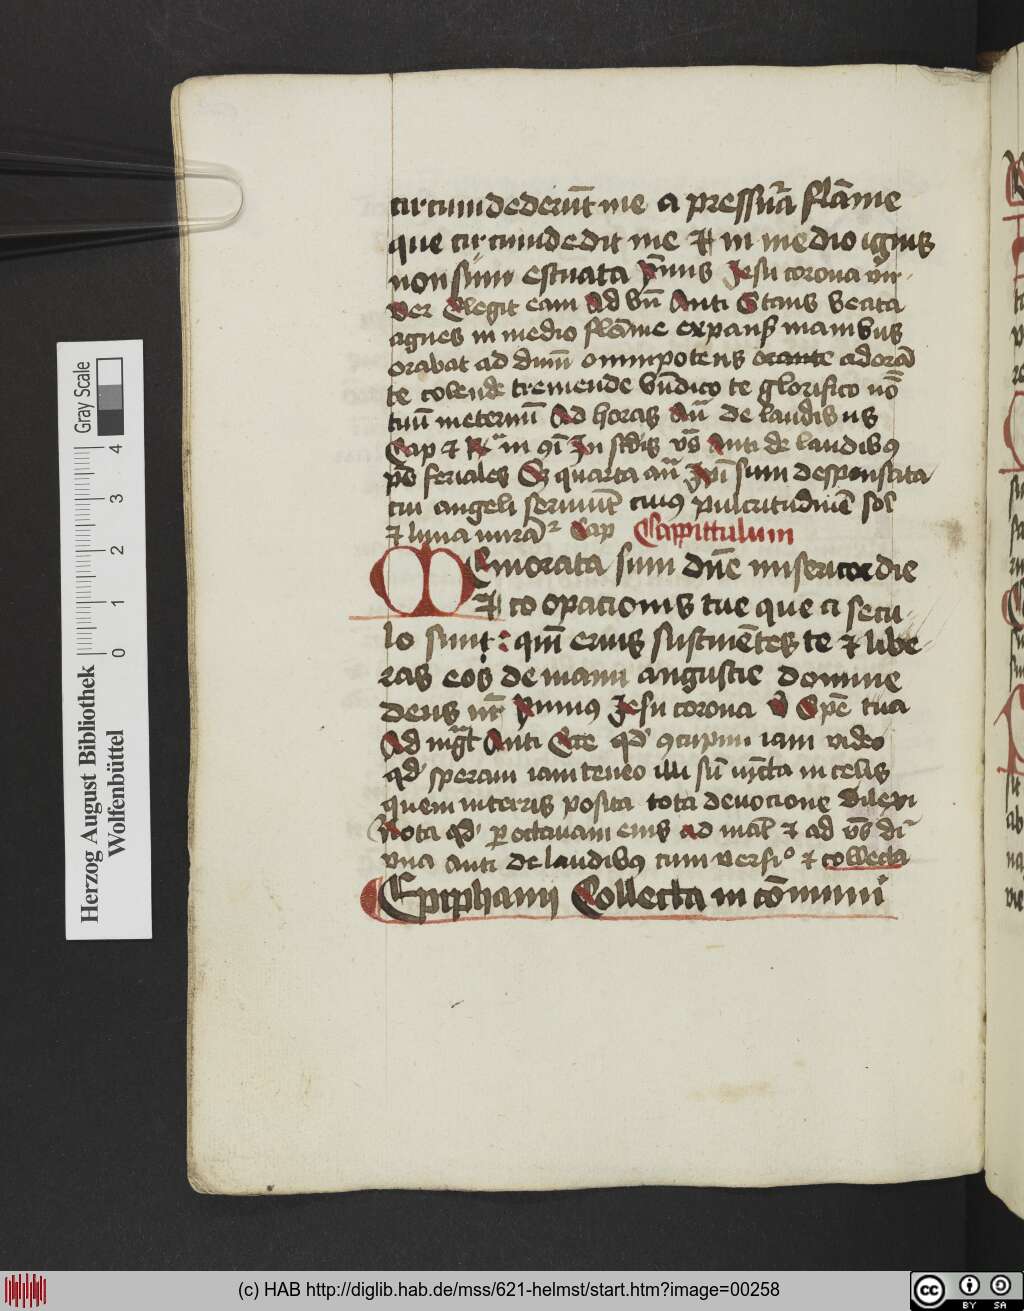 circumdederūt me a pressura flāme
que circumdedit me et in medio ignis
non sum estuata ẏmnus Jesu corona vir-
Ver Elegit eam Ad bn̄ Anti Stans beata
agnes in medio flāme expansis manibus
orabat ad dnm̄ omnipotens orante adorā
te colende tremende bn̄dico te glorifico nō
tuū in eternū Ad horas An̄ de laudibus
Cap et in Anti de laudibus
feriales quarta an̄ sum desponsata
cui angeli seruiūt cuius pulcritudinē sol
et luna mirā Cap Cappittulum
MEmorata sum dn̄e misericordie
et cooperacionis tue que a secu-
lo sunt: qm̄ eruis sustinētes te et libe-
ras eos de manu angustie domine
deus nr̄ ẏmnus Jesu corona v̄ Spē tua
Ad mgt̄ Anti Ecce qd̄ concupiui iam video
qd̄ speraui iam teneo illi sū iūcta in celis
quem in terris posita tota deuocione dilexi
Nota qd̄ per octauam eius ad et ad
vna anti de laudibus cum versi° et collecta
Epiphanij Collecta in cōmuni
Herzog August Bibliothek
Wolfenbüttel
Gray Scale
0 1 2 3 4
(c) HAB http://diglib.hab.de/mss/621-helmst/start.htm?image=00258
cc BY SA